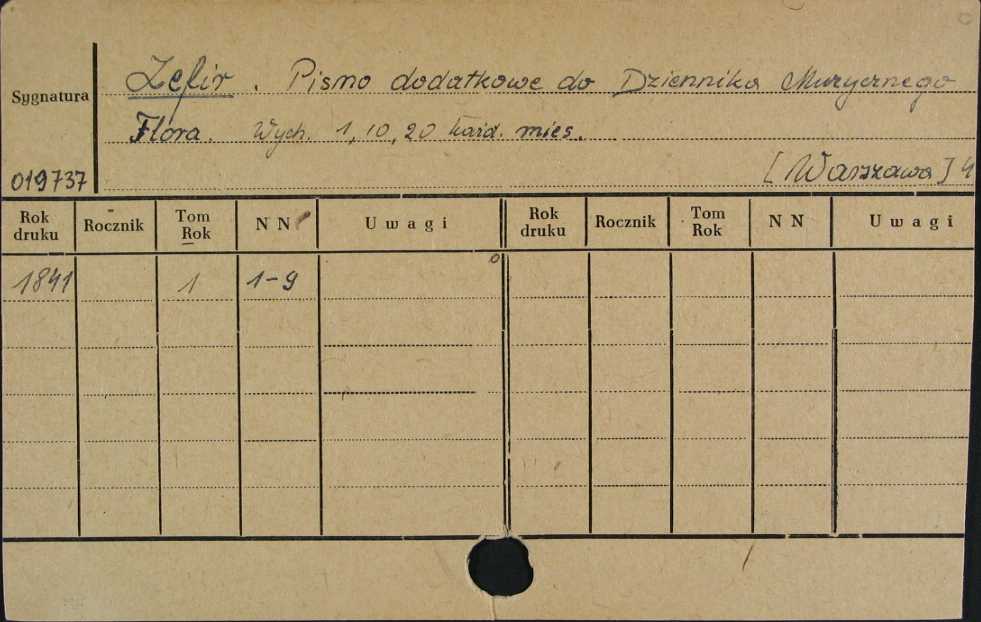 Zefir. Pismo dodatkowe do Dziennika Muzycznego
Sygnatura
Flora. Wych. 1, 10, 20 każd. mies.
019737
[Warszawa] 4
Rok druku Rocznik Tom Rok N N Uwagi Rok druku Rocznik Tom Rok N N Uwagi
1841 1 1-9